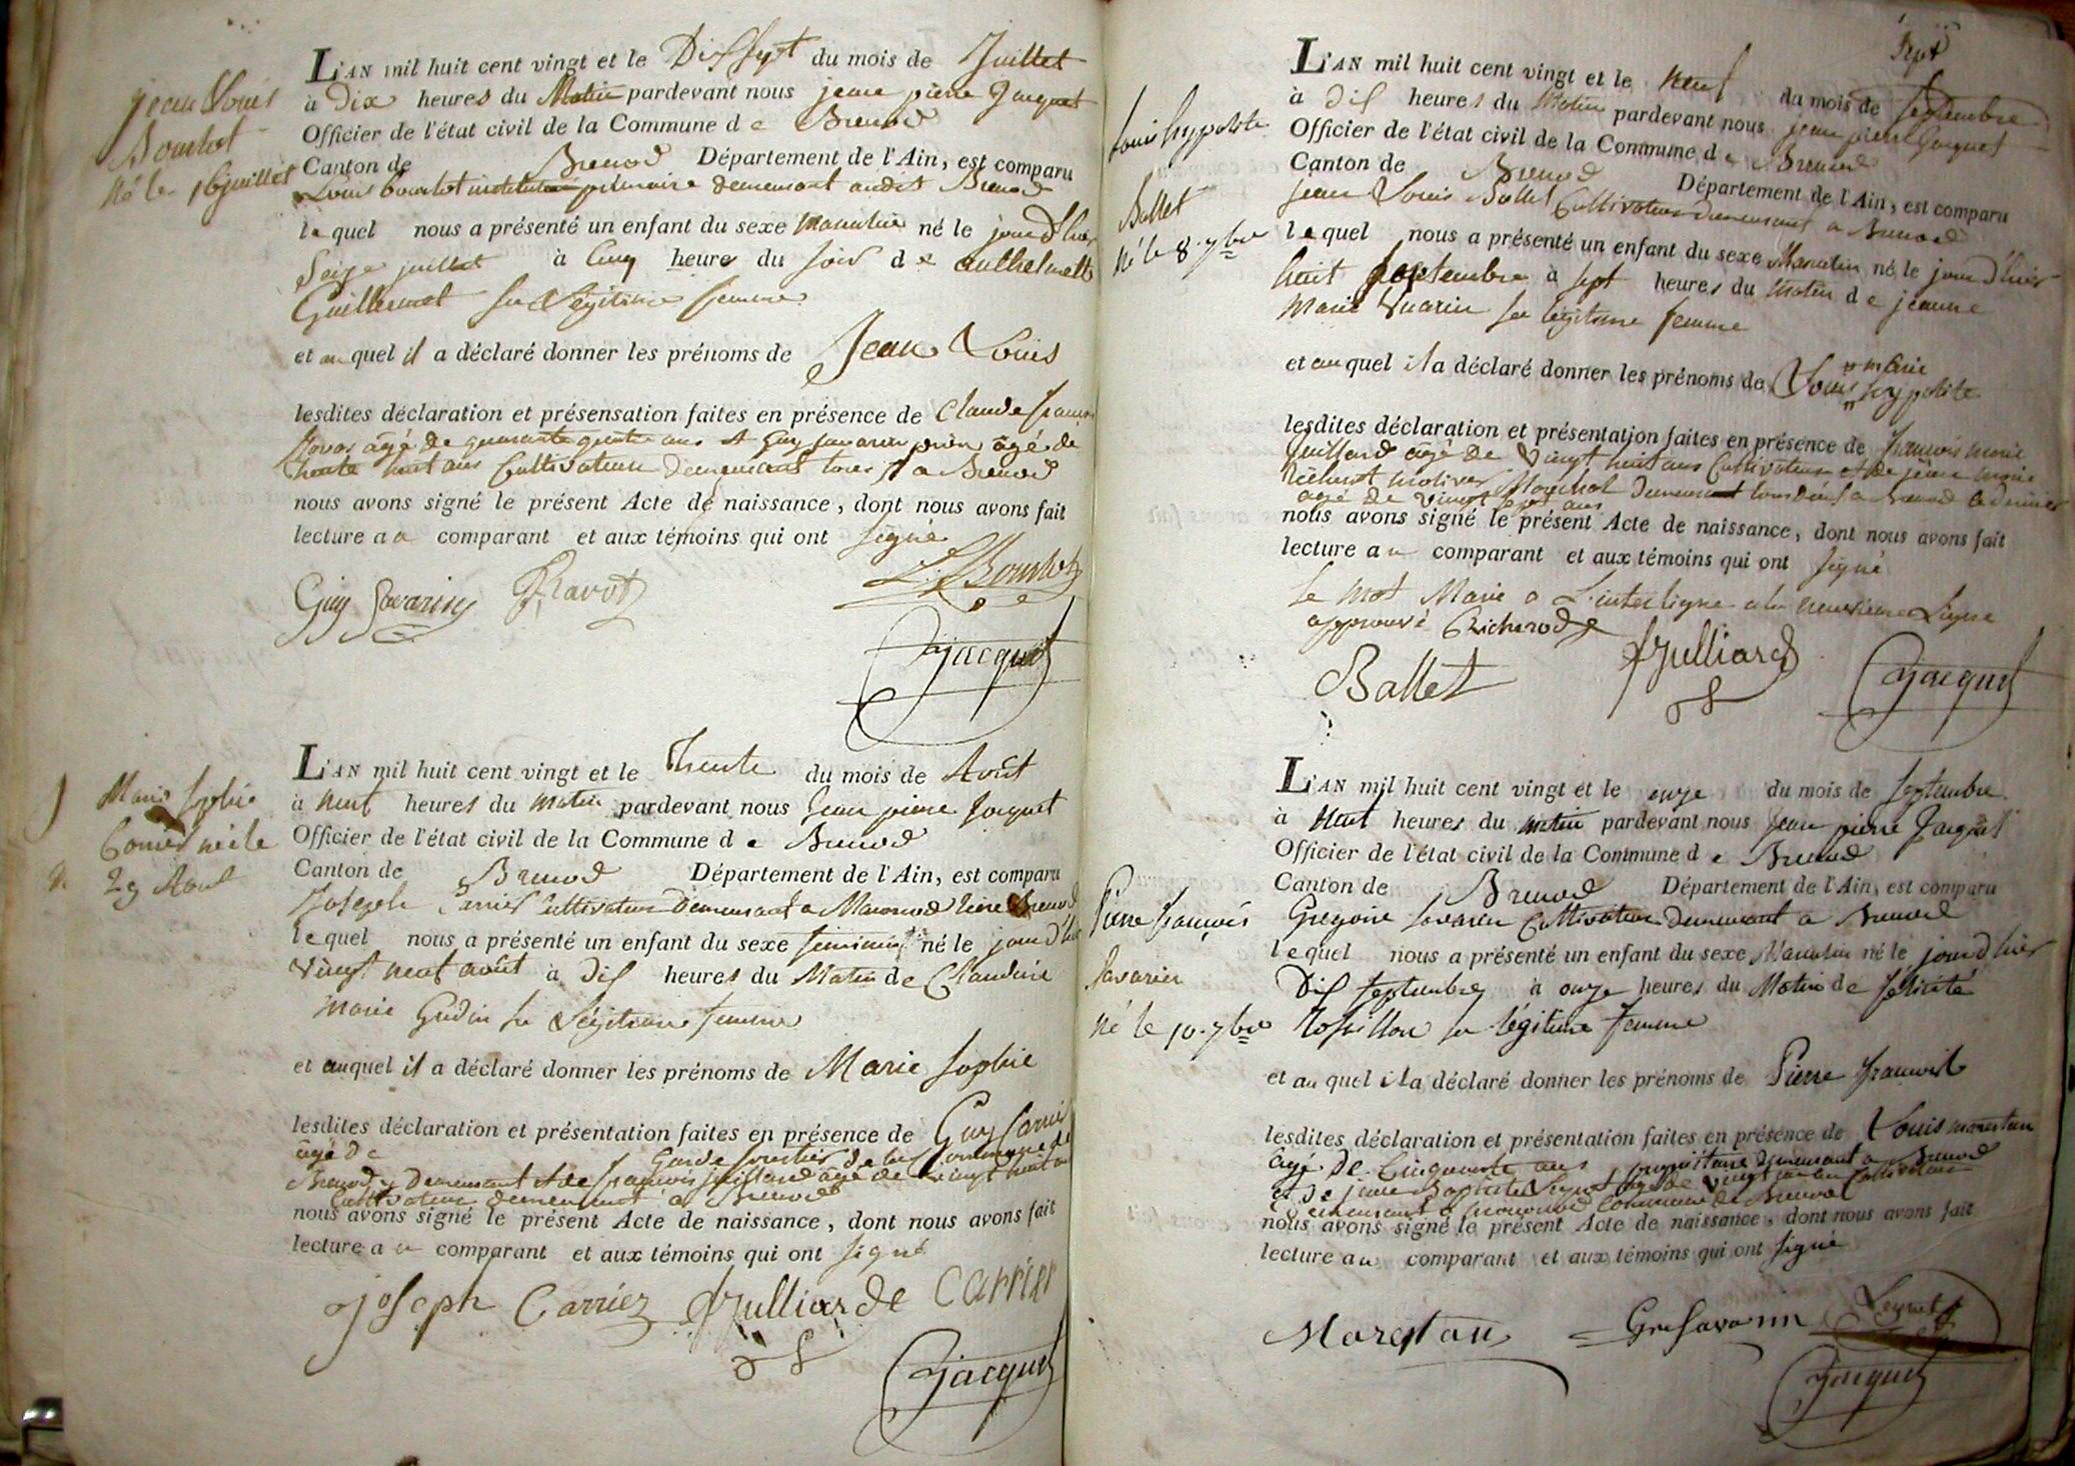 Jean Louis
Bourbot
né le 16 juillet
L'AN mil huit cent vingt et le Dix sept du mois de Juillet
à Dix heures du Matin pardevant nous jean pierre Jacquet
Officier de l'état civil de la Commune d e Brenod
Canton de Brenod Département de l'Ain, est comparu
Louis bourbot instituteur primaire demeurant audit Brenod
le quel nous a présenté un enfant du sexe masculin né le jour d'hier
Seize juillet à Cinq heures du soir d e anthelmette
Guillermet sa Légitime femme
et au quel il a déclaré donner les prénoms de Jean Louis
lesdites déclaration et présensation faites en présence de Claude françois
âgé de quarante quatre ans et Guy savarin âgé de
trente huit ans Cultivateurs Demeurant tous a Brenod
nous avons signé le présent Acte de naissance, dont nous avons fait
lecture a u comparant et aux témoins qui ont signé
Guy Savarin Ravot L. Bourbot
Jacquet
Marie Sophie
Carrier née le
29 Aout
L'AN mil huit cent vingt et le Trente du mois de Août
à neuf heures du matin pardevant nous Jean pierre Jacquet
Officier de l'état civil de la Commune d e Brenod
Canton de Brenod Département de l'Ain, est comparu
Joseph Carrier Cultivateur Demeurant a Macornod Brenod
le quel nous a présenté un enfant du sexe feminin né le jour d'hier
vingt neuf août à Dix heures du Matin de Claudine
Marie Gudin sa Légitime femme
et auquel il a déclaré donner les prénoms de Marie Sophie
lesdites déclaration et présentation faites en présence de Guy Carrier
âgé de Garde forestier de la Commune de
Brenod y Demeurant et de françois juillard âgé de vingt huit ans
Cultivateur demeurant a Brenod
nous avons signé le présent Acte de naissance, dont nous avons fait
lecture a u comparant et aux témoins qui ont signé
joseph Carriez Julliard e Carrier
Jacquet
Sept
Louis hypolite
Ballet
né le 8. 7bre
L'AN mil huit cent vingt et le neuf du mois de Septembre
à Dix heures du Matin pardevant nous jean pierre Jacquet
Officier de l'état civil de la Commune d e Brenod
Canton de Brenod Département de l'Ain, est comparu
jean Louis Ballet Cultivateur Demeurant a Brenod
le quel nous a présenté un enfant du sexe Masculin né le jour d'hier
huit septembre à sept heures du Matin d e jeanne
Marie Savarin sa légitime femme
et au quel il a déclaré donner les prénoms de Louis " marie " hypolite
lesdites déclaration et présentation faites en présence de françois marie
Juillard âgé de vingt huit ans Cultivateur et de jean marie
Demeurant tous deux a Brenod
agé de vingt sept ans
nous avons signé le présent Acte de naissance, dont nous avons fait
lecture a u comparant et aux témoins qui ont signé
Le mot Marie a L'interligne a la neuvieme Ligne
approuvé Richerod
Ballet Julliard Jacquet
Pierre françois
Savarin
né le 10. 7bre
L'AN mil huit cent vingt et le onze du mois de Septembre
à Neuf heures du matin pardevant nous Jean pierre Jacquet
Officier de l'état civil de la Commune d e Brenod
Canton de Brenod Département de l'Ain, est comparu
Gregoire Savarin Cultivateur demeurant a Brenod
le quel nous a présenté un enfant du sexe Masculin né le jour d'hier
Dix septembre à onze heures du Matin de félicité
Rossillon sa légitime femme
et au quel il a déclaré donner les prénoms de Pierre françois
lesdites déclaration et présentation faites en présence de Louis morestan
âgé de Cinquante ans propriétaire demeurant a Brenod
et de jean Baptiste Seyvet agé de vingt un ans Cultivateur
Demeurant a Macornod Commune de Brenod
nous avons signé le présent Acte de naissance, dont nous avons fait
lecture au comparant et aux témoins qui ont signé
Morestan Gre Savarin
Jacquet